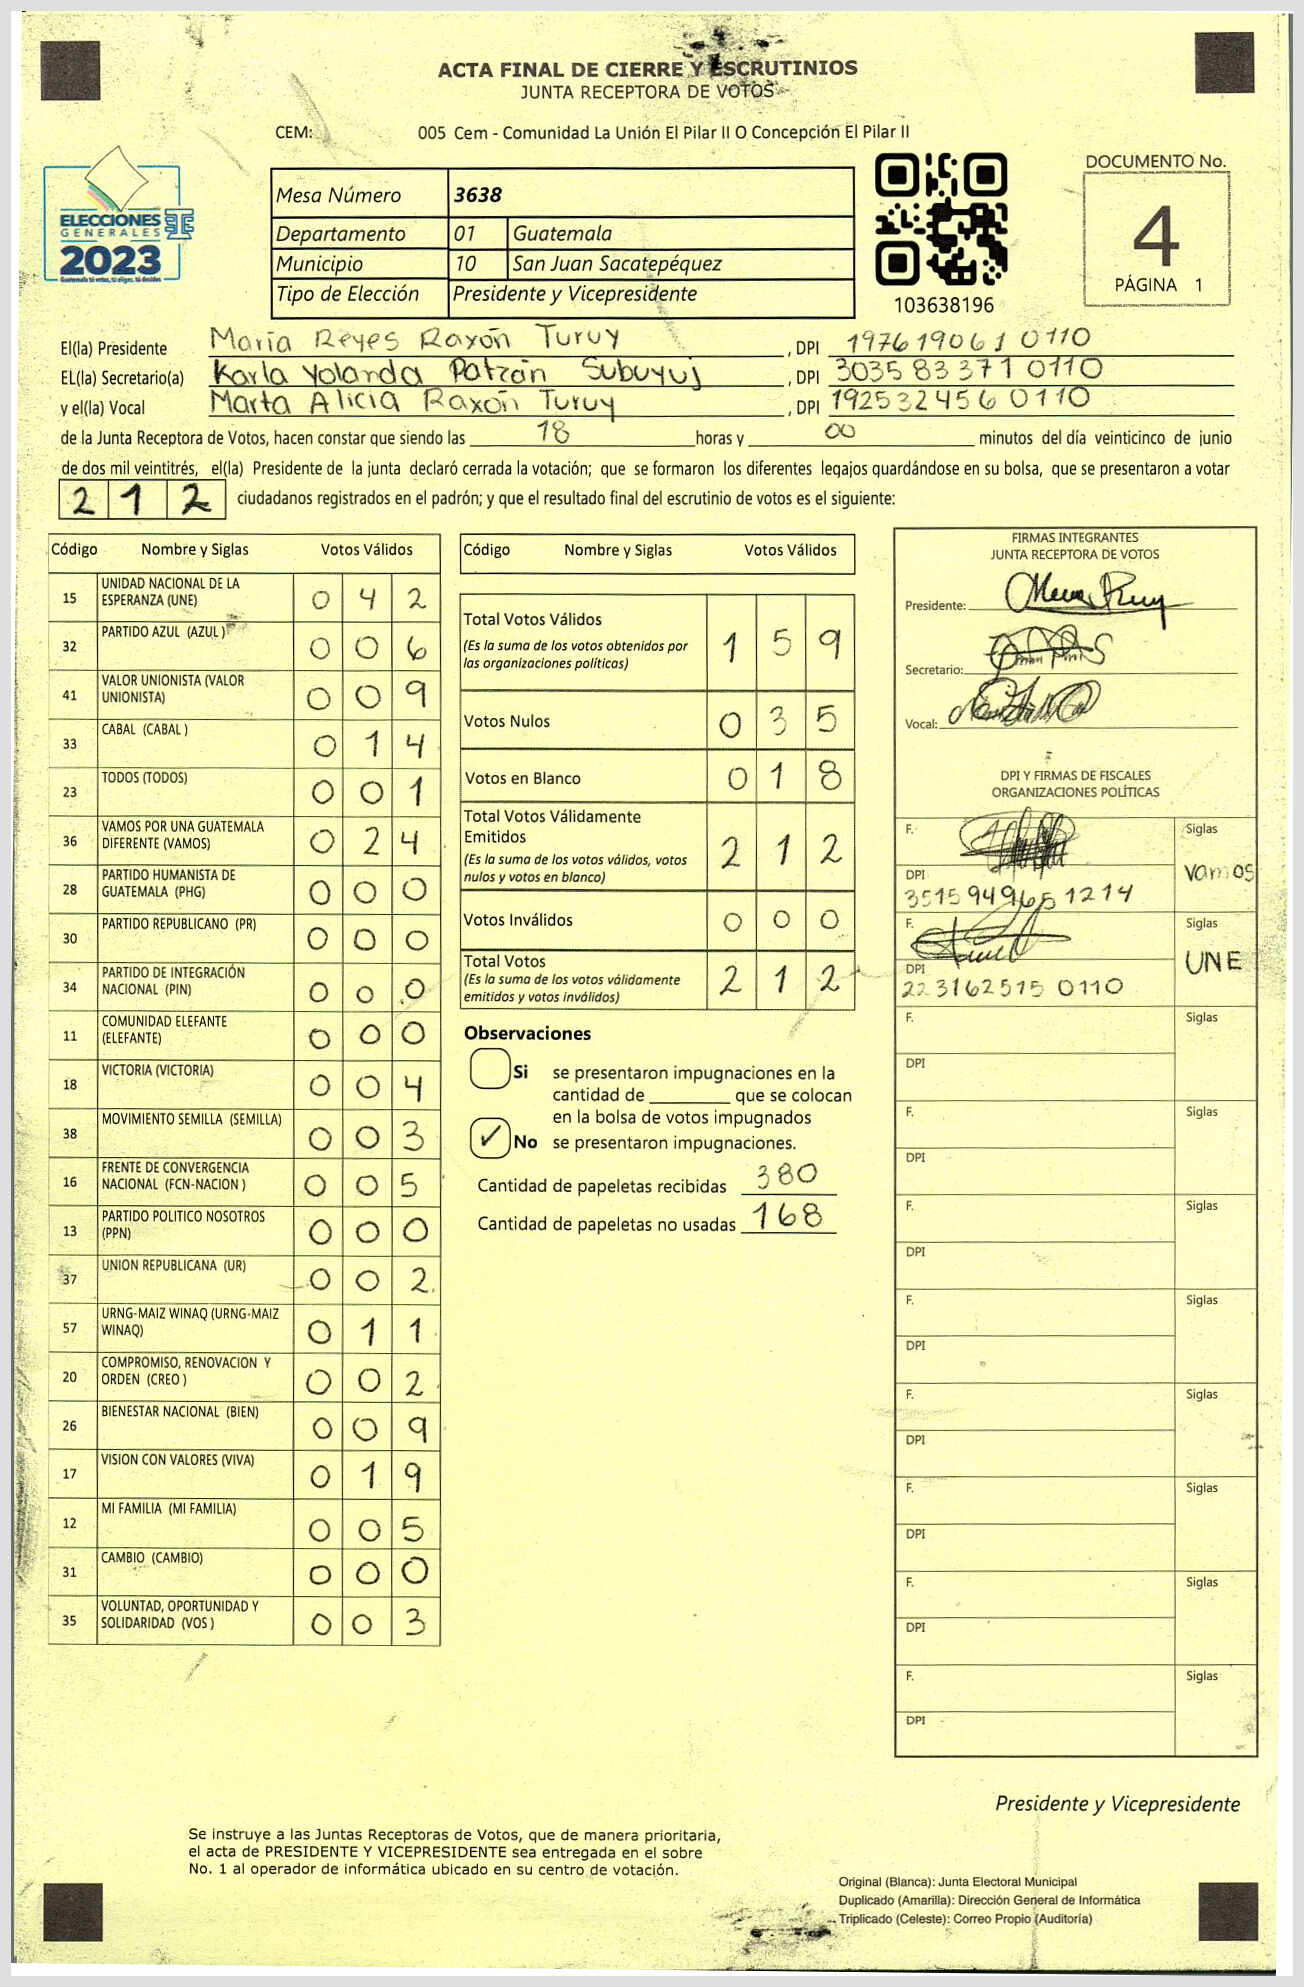 ACTA FINAL DE CIERRE Y ESCRUTINIOS
JUNTA RECEPTORA DE VOTOS
CEM: 005 Cem - Comunidad La Unión El Pilar II O Concepción El Pilar II
ELECCIONES
GENERALES
2023
Guatemala tú votas, tú eliges, tú decides
Mesa Número 3638
Departamento 01 Guatemala
Municipio 10 San Juan Sacatepéquez
Tipo de Elección Presidente y Vicepresidente
103638196
DOCUMENTO No.
4
PÁGINA 1
El(la) Presidente Maria Reyes Raxón Turuy , DPI 197619061 0110
EL(la) Secretario(a) Karla Yolanda Patzán Subuyuj , DPI 3035 83 371 0110
y el(la) Vocal Marta Alicia Raxón Turuy , DPI 192532456 0110
de la Junta Receptora de Votos, hacen constar que siendo las 18 horas y 00 minutos del día veinticinco de junio
de dos mil veintitrés, el(la) Presidente de la junta declaró cerrada la votación; que se formaron los diferentes legajos guardándose en su bolsa, que se presentaron a votar
2 1 2 ciudadanos registrados en el padrón; y que el resultado final del escrutinio de votos es el siguiente:
Código Nombre y Siglas Votos Válidos
15 UNIDAD NACIONAL DE LA
ESPERANZA (UNE) 0 4 2
32 PARTIDO AZUL (AZUL ) 0 0 6
41 VALOR UNIONISTA (VALOR
UNIONISTA) 0 0 9
33 CABAL (CABAL ) 0 1 4
23 TODOS (TODOS) 0 0 1
36 VAMOS POR UNA GUATEMALA
DIFERENTE (VAMOS) 0 2 4
28 PARTIDO HUMANISTA DE
GUATEMALA (PHG) 0 0 0
30 PARTIDO REPUBLICANO (PR) 0 0 0
34 PARTIDO DE INTEGRACIÓN
NACIONAL (PIN) 0 0 0
11 COMUNIDAD ELEFANTE
(ELEFANTE) 0 0 0
18 VICTORIA (VICTORIA) 0 0 4
38 MOVIMIENTO SEMILLA (SEMILLA) 0 0 3
16 FRENTE DE CONVERGENCIA
NACIONAL (FCN-NACION ) 0 0 5
13 PARTIDO POLITICO NOSOTROS
(PPN) 0 0 0
37 UNION REPUBLICANA (UR) 0 0 2
57 URNG-MAIZ WINAQ (URNG-MAIZ
WINAQ) 0 1 1
20 COMPROMISO, RENOVACION Y
ORDEN (CREO ) 0 0 2
26 BIENESTAR NACIONAL (BIEN) 0 0 9
17 VISION CON VALORES (VIVA) 0 1 9
12 MI FAMILIA (MI FAMILIA) 0 0 5
31 CAMBIO (CAMBIO) 0 0 0
35 VOLUNTAD, OPORTUNIDAD Y
SOLIDARIDAD (VOS ) 0 0 3
Código Nombre y Siglas Votos Válidos
Total Votos Válidos 1 5 9
(Es la suma de los votos obtenidos por
las organizaciones políticas)
Votos Nulos 0 3 5
Votos en Blanco 0 1 8
Total Votos Válidamente
Emitidos 2 1 2
(Es la suma de los votos válidos, votos
nulos y votos en blanco)
Votos Inválidos 0 0 0
Total Votos 2 1 2
(Es la suma de los votos válidamente
emitidos y votos inválidos)
Observaciones
Si se presentaron impugnaciones en la
cantidad de ________ que se colocan
en la bolsa de votos impugnados
✓ No se presentaron impugnaciones.
Cantidad de papeletas recibidas 380
Cantidad de papeletas no usadas 168
FIRMAS INTEGRANTES
JUNTA RECEPTORA DE VOTOS
Presidente:
Secretario:
Vocal:
DPI Y FIRMAS DE FISCALES
ORGANIZACIONES POLÍTICAS
F. Siglas
Vamos
DPI
F. Siglas
UNE
DPI
22 3162515 0110
F. Siglas
DPI
F. Siglas
DPI
F. Siglas
DPI
F. Siglas
DPI
F. Siglas
DPI
F. Siglas
DPI
F. Siglas
DPI
F. Siglas
DPI
Presidente y Vicepresidente
Se instruye a las Juntas Receptoras de Votos, que de manera prioritaria,
el acta de PRESIDENTE Y VICEPRESIDENTE sea entregada en el sobre
No. 1 al operador de informática ubicado en su centro de votación.
Original (Blanca): Junta Electoral Municipal
Duplicado (Amarilla): Dirección General de Informática
Triplicado (Celeste): Correo Propio (Auditoría)